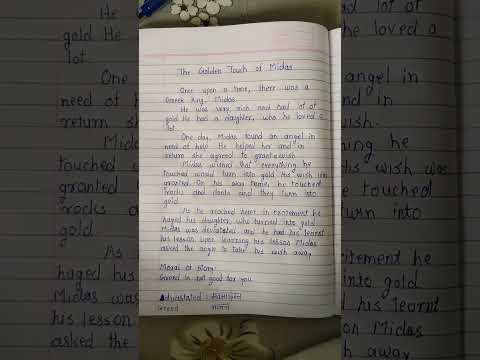 The Golden Touch of Midas
Once upon a time, there was a
Greek King, Midas
He was very rich and had lot of
gold He had a daughter, who he loved a
lot.
One day, Midas found an angel in
need of help He helped her and in
return she agreed to grant wish
Midas wished that everything he
touched would turn into gold His wish was
granted. On his way home, he touched
rocks and and they turn into
gold
As he reached in excitement he
huged his daughter, who turned into gold
Midas was devastated and he had his learnt
his lesson Upon learning his lesson Midas
asked the angle to take his wish away
Moral of story:
Greed is not good for you
:
Greed